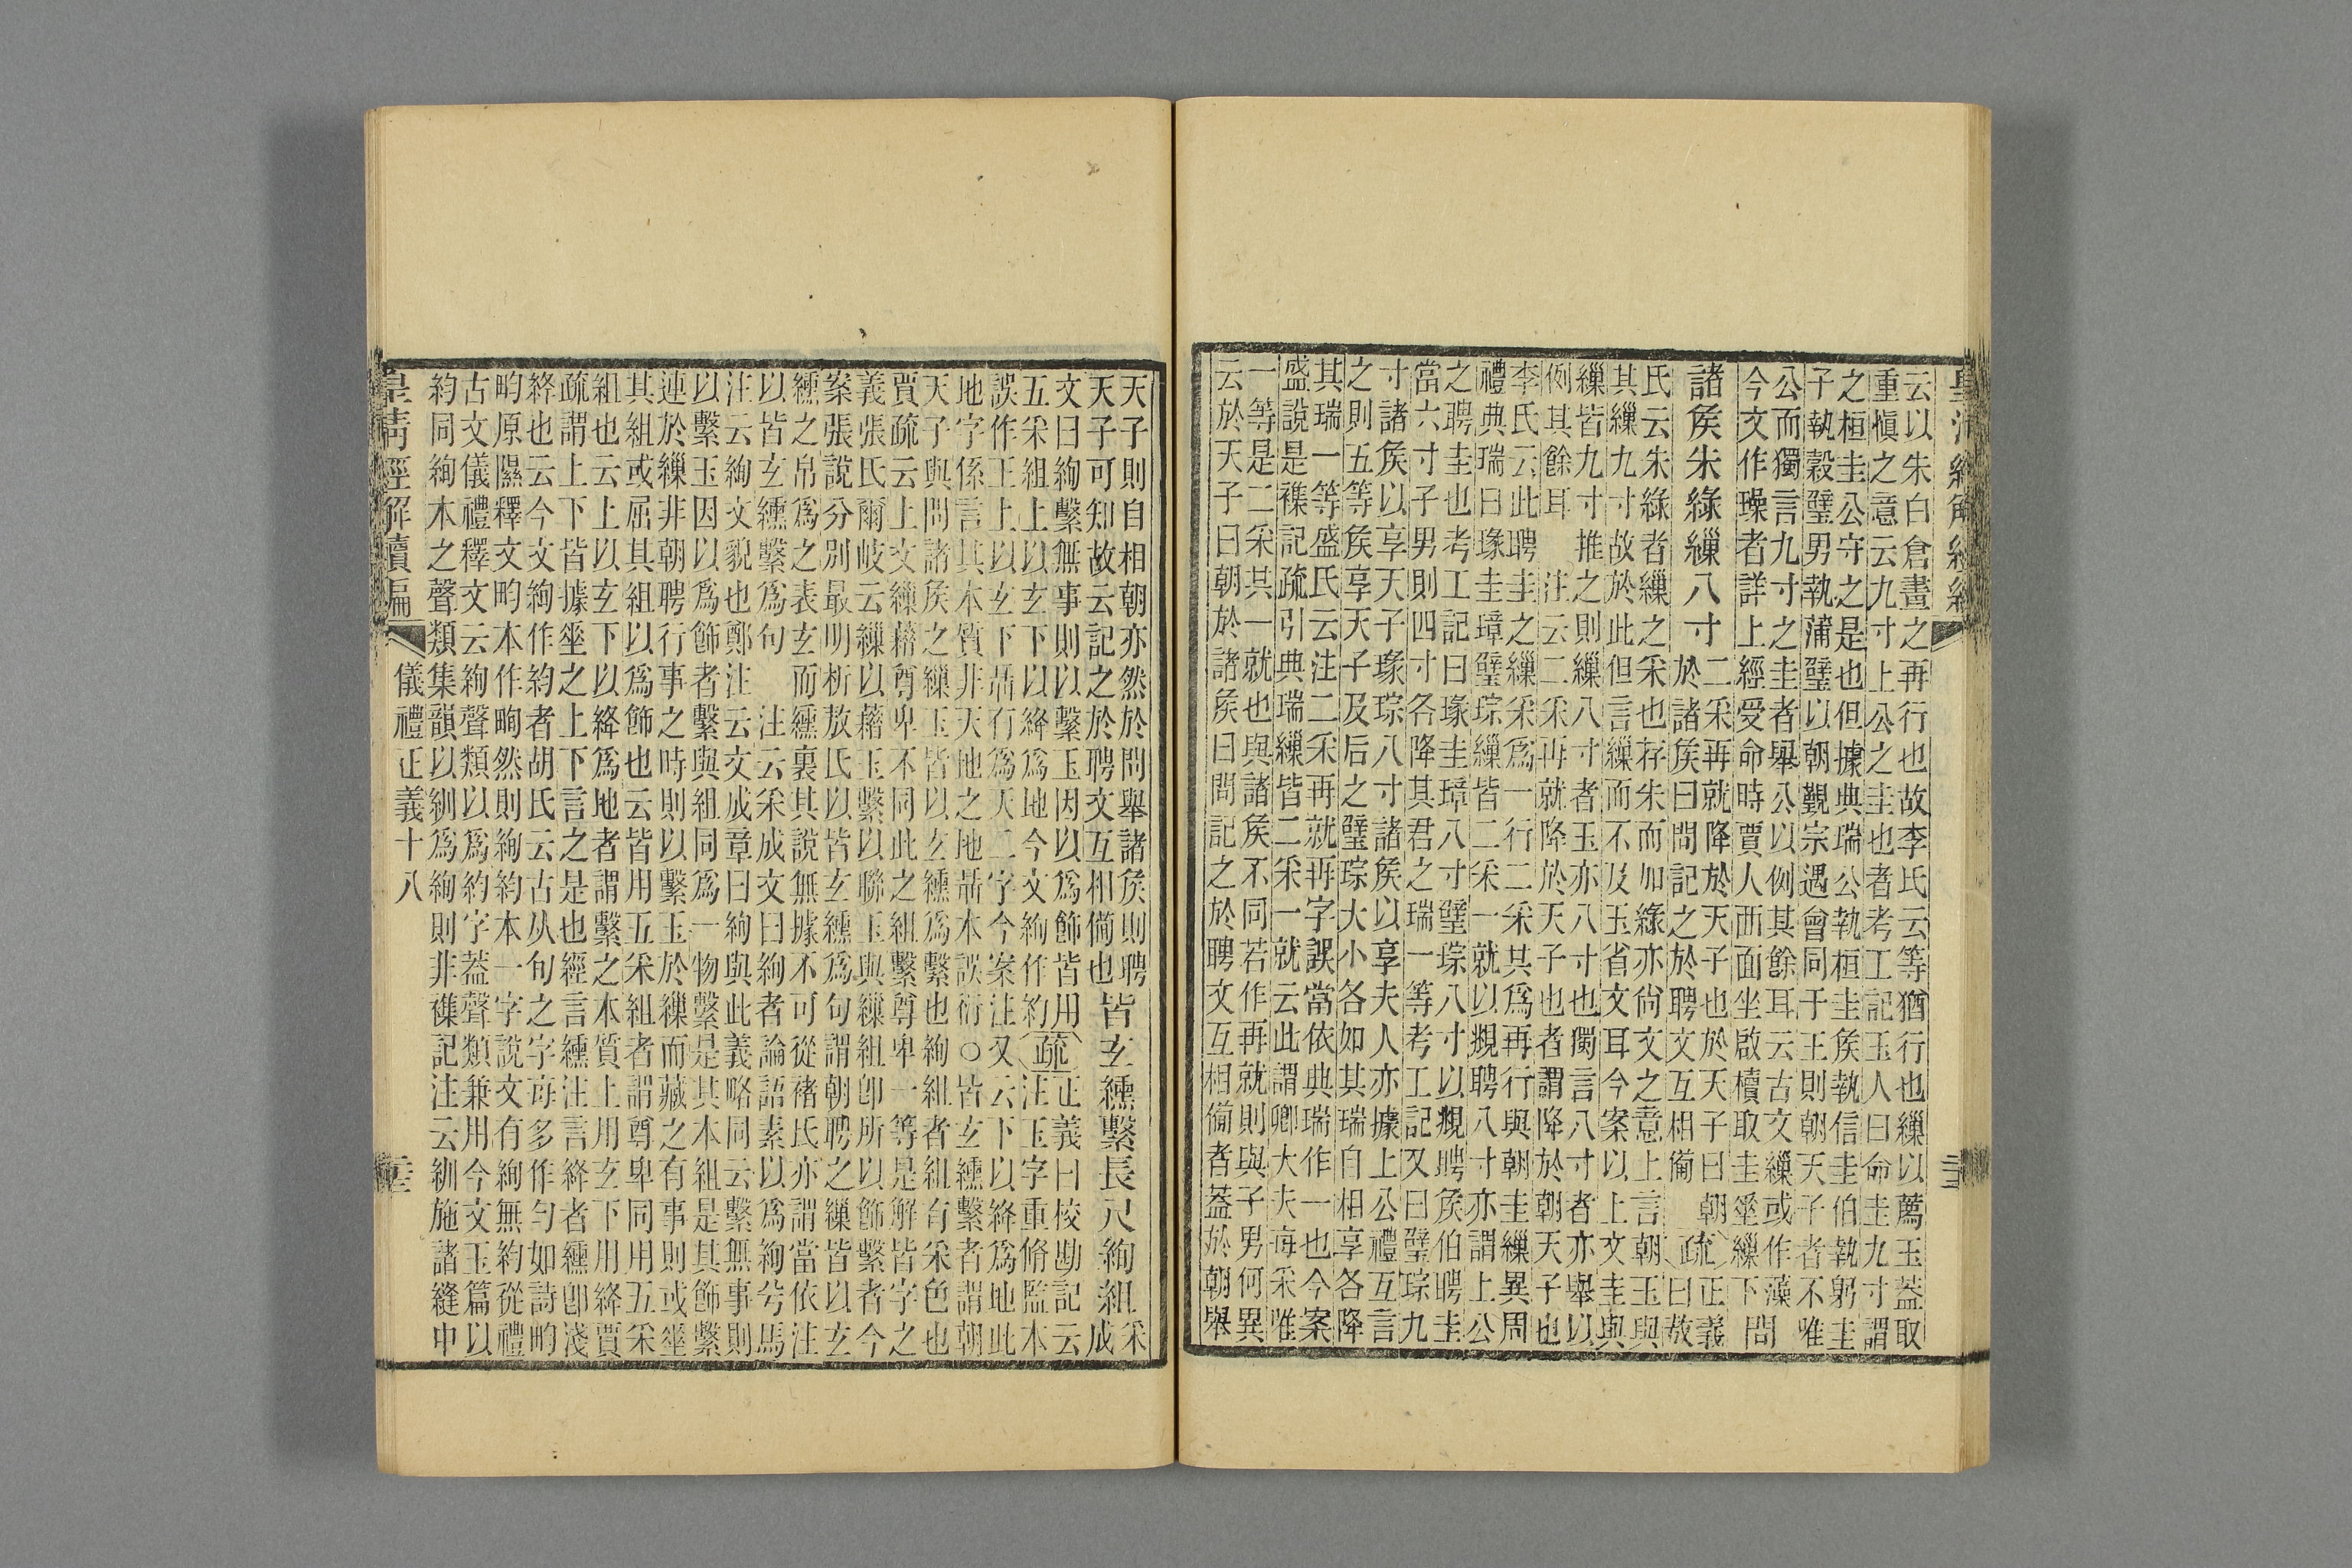 云以朱白倉畫之再行也故李氏云等猶行也繅以薦玉蓋取
重愼之意云九寸上公之圭也者考工記玉人曰命圭九寸謂
之桓圭公守之是也但據典瑞公執桓圭矦執信圭伯執躬圭
子執榖璧男執蒲璧以朝覲宗遇會同于王則朝天子者不唯
公而獨言九寸之圭者舉公以例其餘耳云古文繅或作藻
今文作璪者詳上經受命時賈人西面坐啟櫝取圭垂繅下問
諸矦朱綠繅八寸
二采再就降於天子也於天子曰朝
於諸矦曰問記之於聘文互相僃
疏
正義
曰敖
氏云朱綠者繅之采也存朱而加綠亦尙文之意上言朝玉與
其繅九寸故於此但言繅而不及玉省文耳今案以上文圭與
繅皆九寸推之則繅八寸者玉亦八寸也獨言八寸者亦舉以
例其餘耳　注云二采再就降於天子也者謂降於朝天子也
李氏云此聘圭之繅采爲一行二采其爲再行與朝圭繅異周
禮典瑞曰瑑圭璋璧琮繅皆二采一就以覜聘八寸亦謂上公
之聘圭也考工記曰瑑圭璋八寸璧琮八寸以覜聘矦伯聘圭
當六寸子男則四寸各降其君之瑞一等考工記又曰璧琮九
寸諸矦以享天子瑑琮八寸諸矦以享夫人亦據上公禮互言
之則五等矦享天子及后之璧琮大小各如其瑞自相享各降
其瑞一等盛氏云注二采再就再字誤當依典瑞作一也今案
盛說是襍記疏引典瑞繅皆二采一就云此謂卿大夫每采唯
一等是二采其一就也與諸矦不同若作再就則與子男何異
云於天子曰朝於諸矦曰問記之於聘文互相僃者蓋於朝舉
天子則自相朝亦然於問舉諸矦則聘
天子可知故云記之於聘文互相僃也
皆玄纁繫長尺絢組
采
成
文曰絢繫無事則以繫玉因以爲飾皆用
五采組上以玄下以絳爲地今文絢作約
疏
正義曰校勘記云
注玉字重脩監本
誤作王上以玄下畾行爲天二字今案注又云下以絳爲地此
地字係言其本質非天地之地畾本誤衍○皆玄纁繫者謂朝
天子與問諸矦之繅玉皆以玄纁爲繫也絢組者組有采色也
賈疏云上文繅藉尊卑不同此之組繫尊卑一等是解皆字之
義張氏爾岐云繅以藉玉繫以聯玉與繅組卽所以飾繫者今
案張說分別最明析敖氏以皆玄纁爲句謂朝聘之繅皆以玄
纁之帛爲之表玄而纁裏其說無據不可從褚氏亦謂當依注
以皆玄纁繫爲句　注云采成文曰絢者論語素以爲絢兮馬
注云絢文貌也鄭注云文成章曰絢與此義略同云繫無事則
以繫玉因以爲飾者繫與組同爲一物繫是其本組是其飾繫
連於繅非朝聘行事之時則以繫玉於繅而藏之有事則或垂
其組或屈其組以爲飾也云皆用五采組者謂尊卑同用五采
組也云上以玄下以絳爲地者謂繫之本質上用玄下用絳賈
疏謂上下皆據垂之上下言之是也經言纁注言絳者纁卽淺
絳也云今文絢作約者胡氏云古从句之字每多作勻如詩畇
畇原隰釋文畇本作㽦然則絢約本一字說文有絢無約從禮
古文儀禮釋文云絢聲類以爲約字蓋聲類兼用今文玉篇以
約同絢木之聲類集韻以紃爲絢則非襍記注云紃施諸縫中
皇淸經解續編
儀禮正義十八